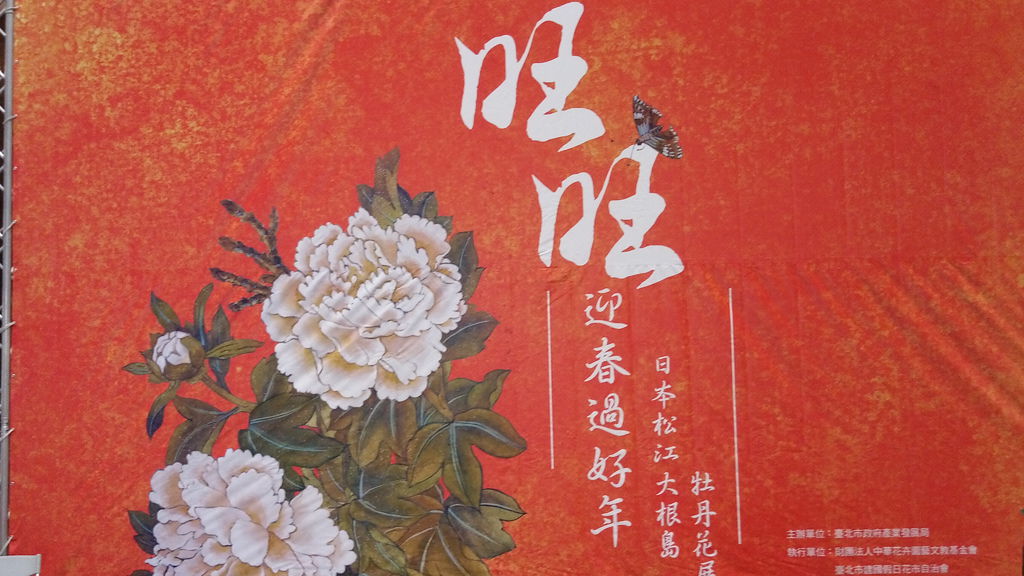 旺旺
迎春過好年
日本松江大根島
牡丹花展
主辦單位：臺北市政府產業發展局
執行單位：財團法人中華花卉園藝文教基金會
臺北市建國假日花市自治會